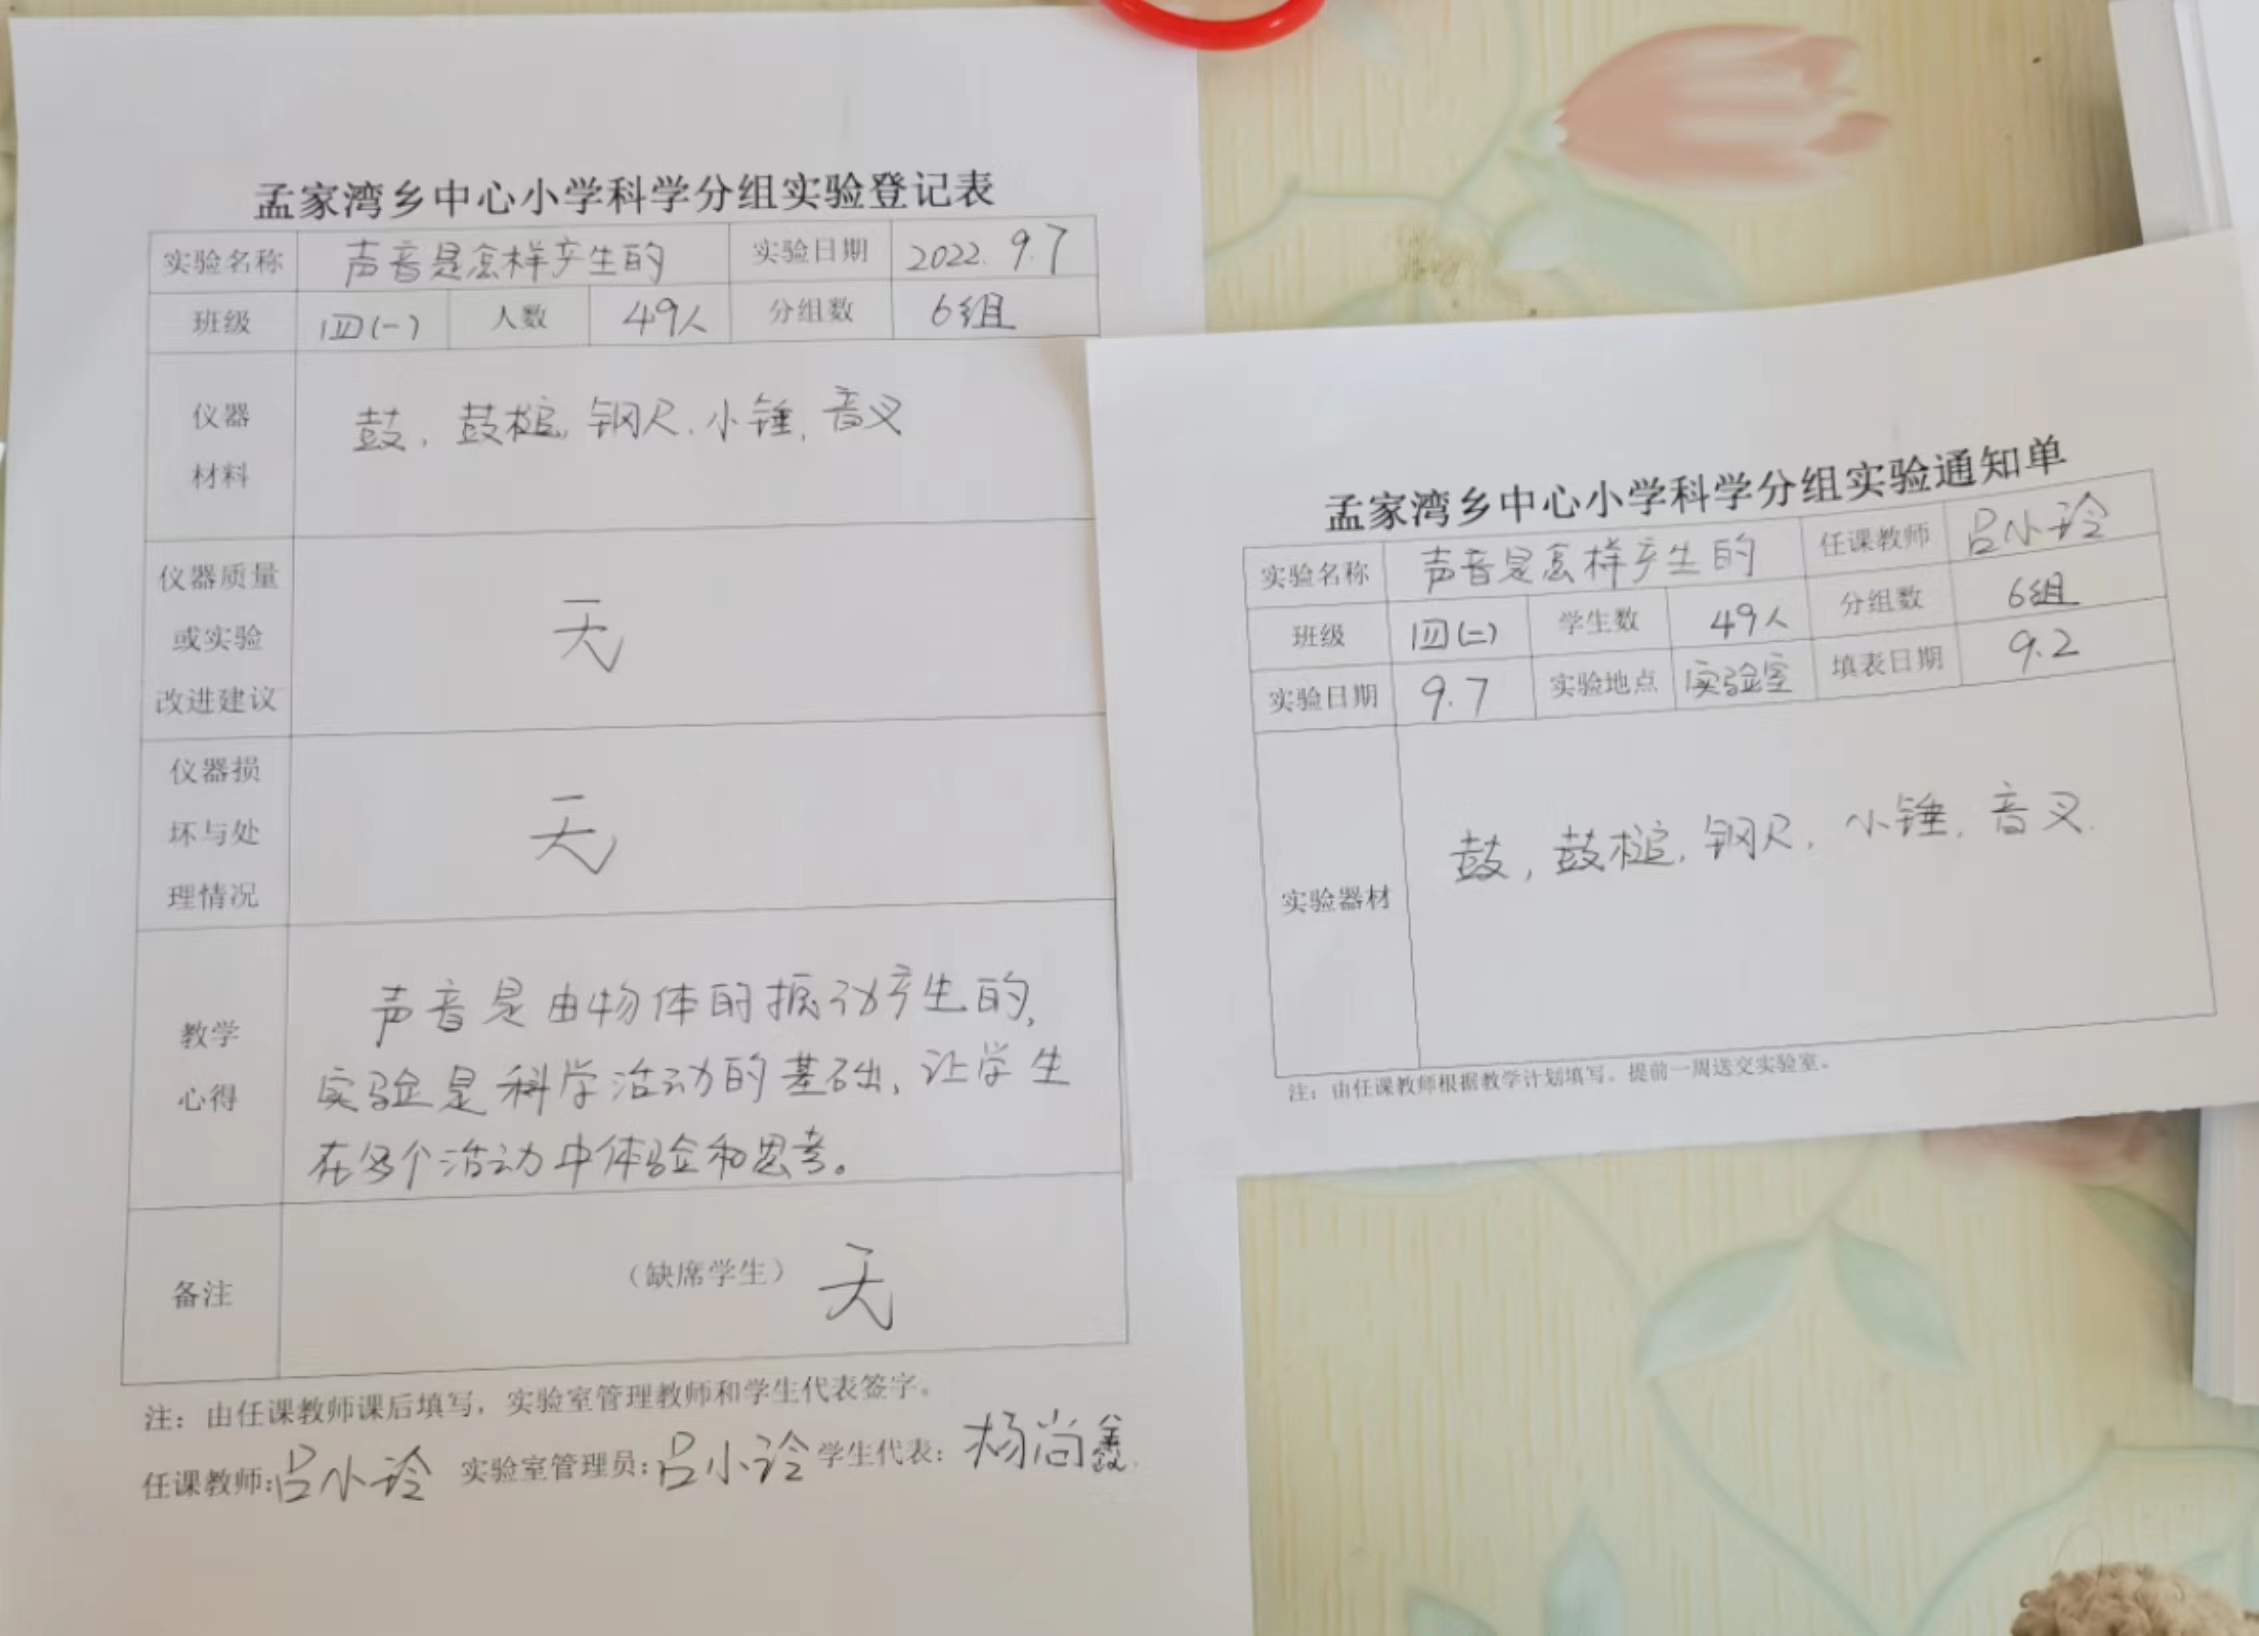 孟家湾乡中心小学科学分组实验登记表
实验名称 声音是怎样产生的 实验日期 2022.9.7
班级 四(一) 人数 49人 分组数 6组
仪器
材料
鼓,鼓槌,钢尺.小锤,音叉
仪器质量
或实验
改进建议
无
仪器损
坏与处
理情况
无
教学
心得
声音是由物体的振动产生的,
实验是科学活动的基础,让学生
在多个活动中体验和思考。
备注 (缺席学生) 无
注:由任课教师课后填写,实验室管理教师和学生代表签字。
任课教师:吕小玲 实验室管理员:吕小玲 学生代表:杨尚鑫
孟家湾乡中心小学科学分组实验通知单
实验名称 声音是怎样产生的 任课教师 吕小玲
班级 四(二) 学生数 49人 分组数 6组
实验日期 9.7 实验地点 实验室 填表日期 9.2
实验器材 鼓,鼓槌,钢尺,小锤,音叉.
注:由任课教师根据教学计划填写。提前一周送交实验室。